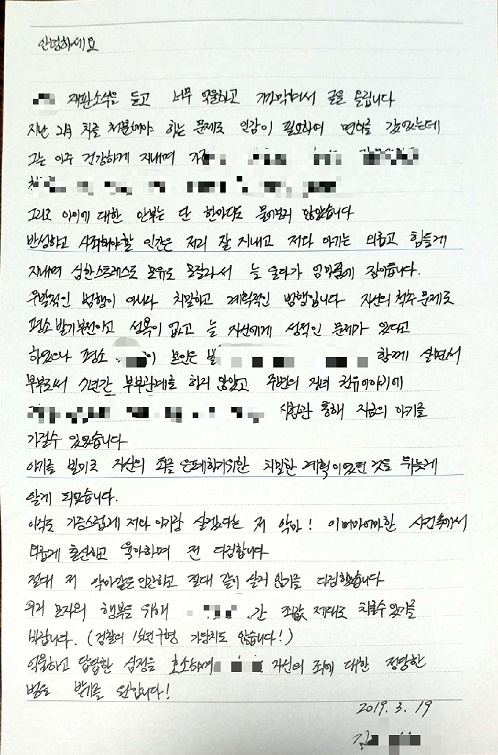 안녕하세요
재판소식을 듣고 너무 억울하고 깜깜해서 글을 올립니다
지난 2월 차를 처분해야 하는 문제로 인감이 필요하여 면회를 갔었는데
그는 아주 건강하게 지내며
그리고 아이에 대한 안부는 단 한마디도 물어보지 않았습니다
반성하고 사죄해야할 인간은 저리 잘 지내고 저와 아기는 외롭고 힘들게
지내며 심한스트레스로 모유도 못물려서 늘 울다가 잠이듭니다.
우발적인 범행이 아니라 치밀하고 계획적인 범행입니다 자신의 척추문제로
평소 발기부전이고 성욕이 없고 늘 자신에게 성적인 문제가 있다고
하였으나 평소 이 본인은 함께 살면서
부부로서 2년간 부부관계를 하지 않았고 주변의 자녀 권유이야기에
시험관 통해 지금의 아기를
가질수 있었습니다
아기를 빌미로 자신의 죄를 은폐하기위한 치밀한 계획이었던 것도 뒤늦게
알게 되었습니다.
아직도 가증스럽게 저와 아기랑 살겠다는 저 악마! 어마어마한 사건속에서
힘겹게 출산하고 육아하며 전 다짐합니다
절대 저 악마같은 인간하고 절대 같이 살지 않기를 다짐했습니다
우리 모자의 행복을 위해 간 죄값 제대로 치를수 있기를
바랍니다. (검찰의 15년구형 가당치도 않습니다!)
억울하고 답답한 심정을 호소하며 자신의 죄에 대한 정당한
벌을 받기를 원합니다!
2019. 3. 19
김